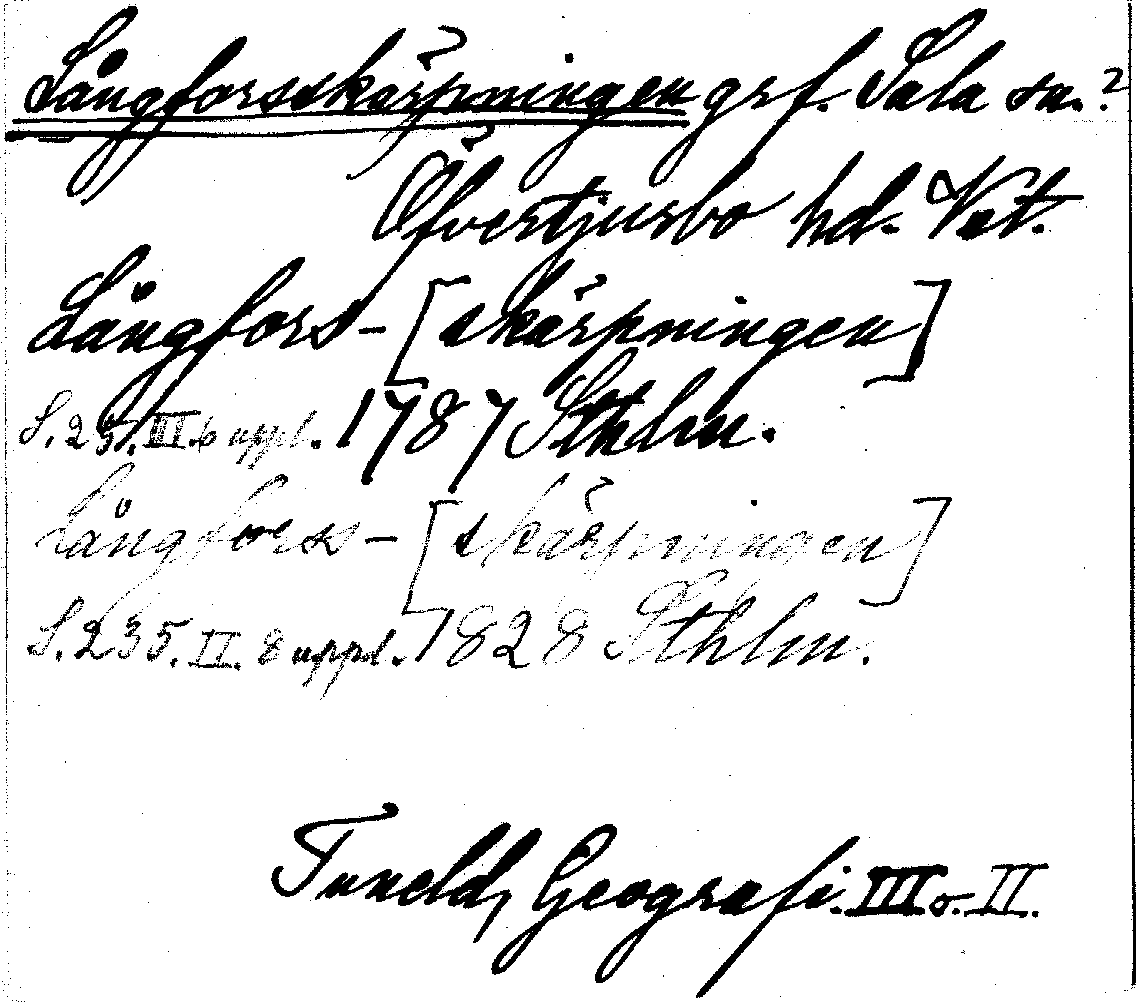 Långforsskärpningen grf. Sala sn.?
Öfvertjurbo hd. Vst.
Långfors-[skärpningen]
S. 25. III. 6 uppl. 1787 Sthlm.
Långforss-[skärpningen]
S. 235. II. 8 uppl. 1828 Sthlm.
Tuneld, Geografi. III o. II.